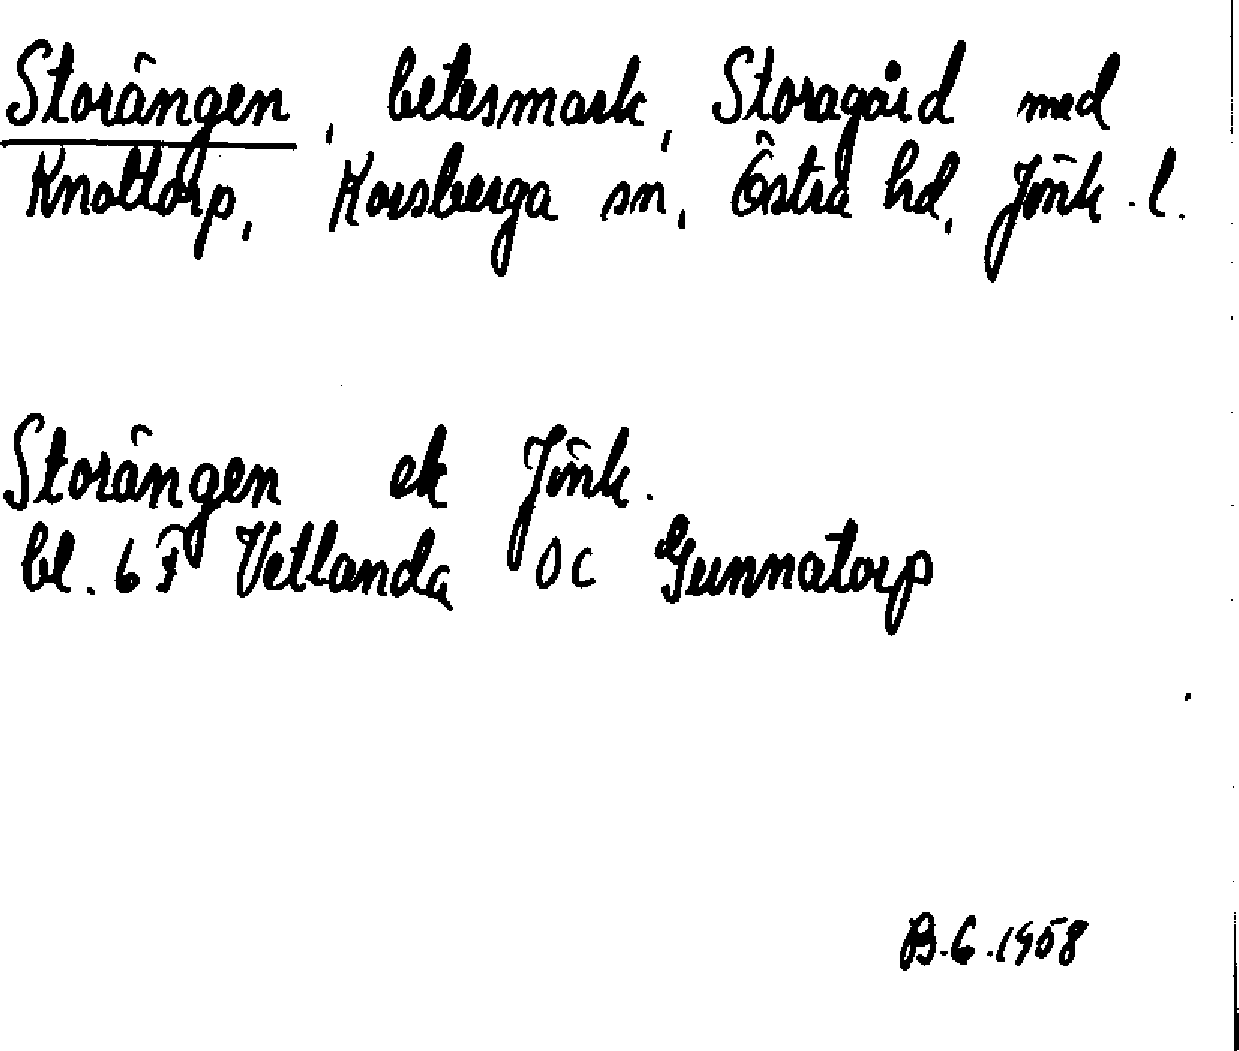 Storängen, betesmark, Storagård med
Knoltorp, Korsberga sn, Östra hd, Jönk. l.
Storängen ek Jönk.
bl. 6 F Vetlanda 0 c Gunnatorp
B.G. 1958